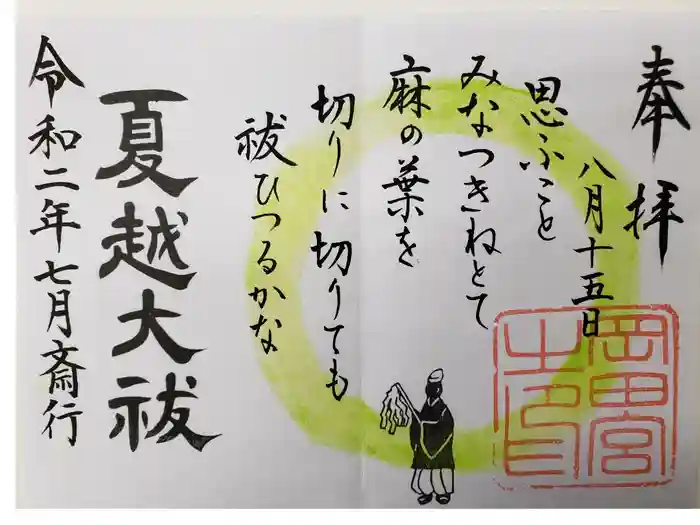 奉拝
八月十五日
思ふこと
みなつきねとて
麻の葉を
切りに切りても
祓ひつるかな
夏越大祓
令和二年七月斎行
岡田宮